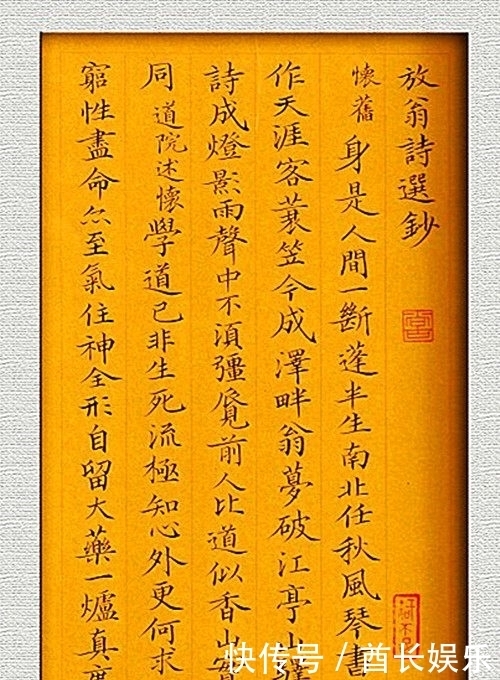 放翁詩選鈔
懷舊 身是人間一斷蓬半生南北任秋風琴書
作天涯客蓑笠今成澤畔翁夢破江亭山驛
詩成燈影雨聲中不須彊覓前人比道似香山實
同 道院述懷 學道已非生死流極知心外更何求
窮性盡命尒至氣住神全形自留大藥一爐真
快传号/酋长娱乐